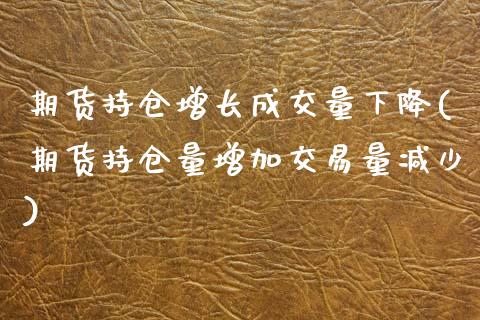 期货持仓增长成交量下降(
期货持仓量增加交易量减少
)